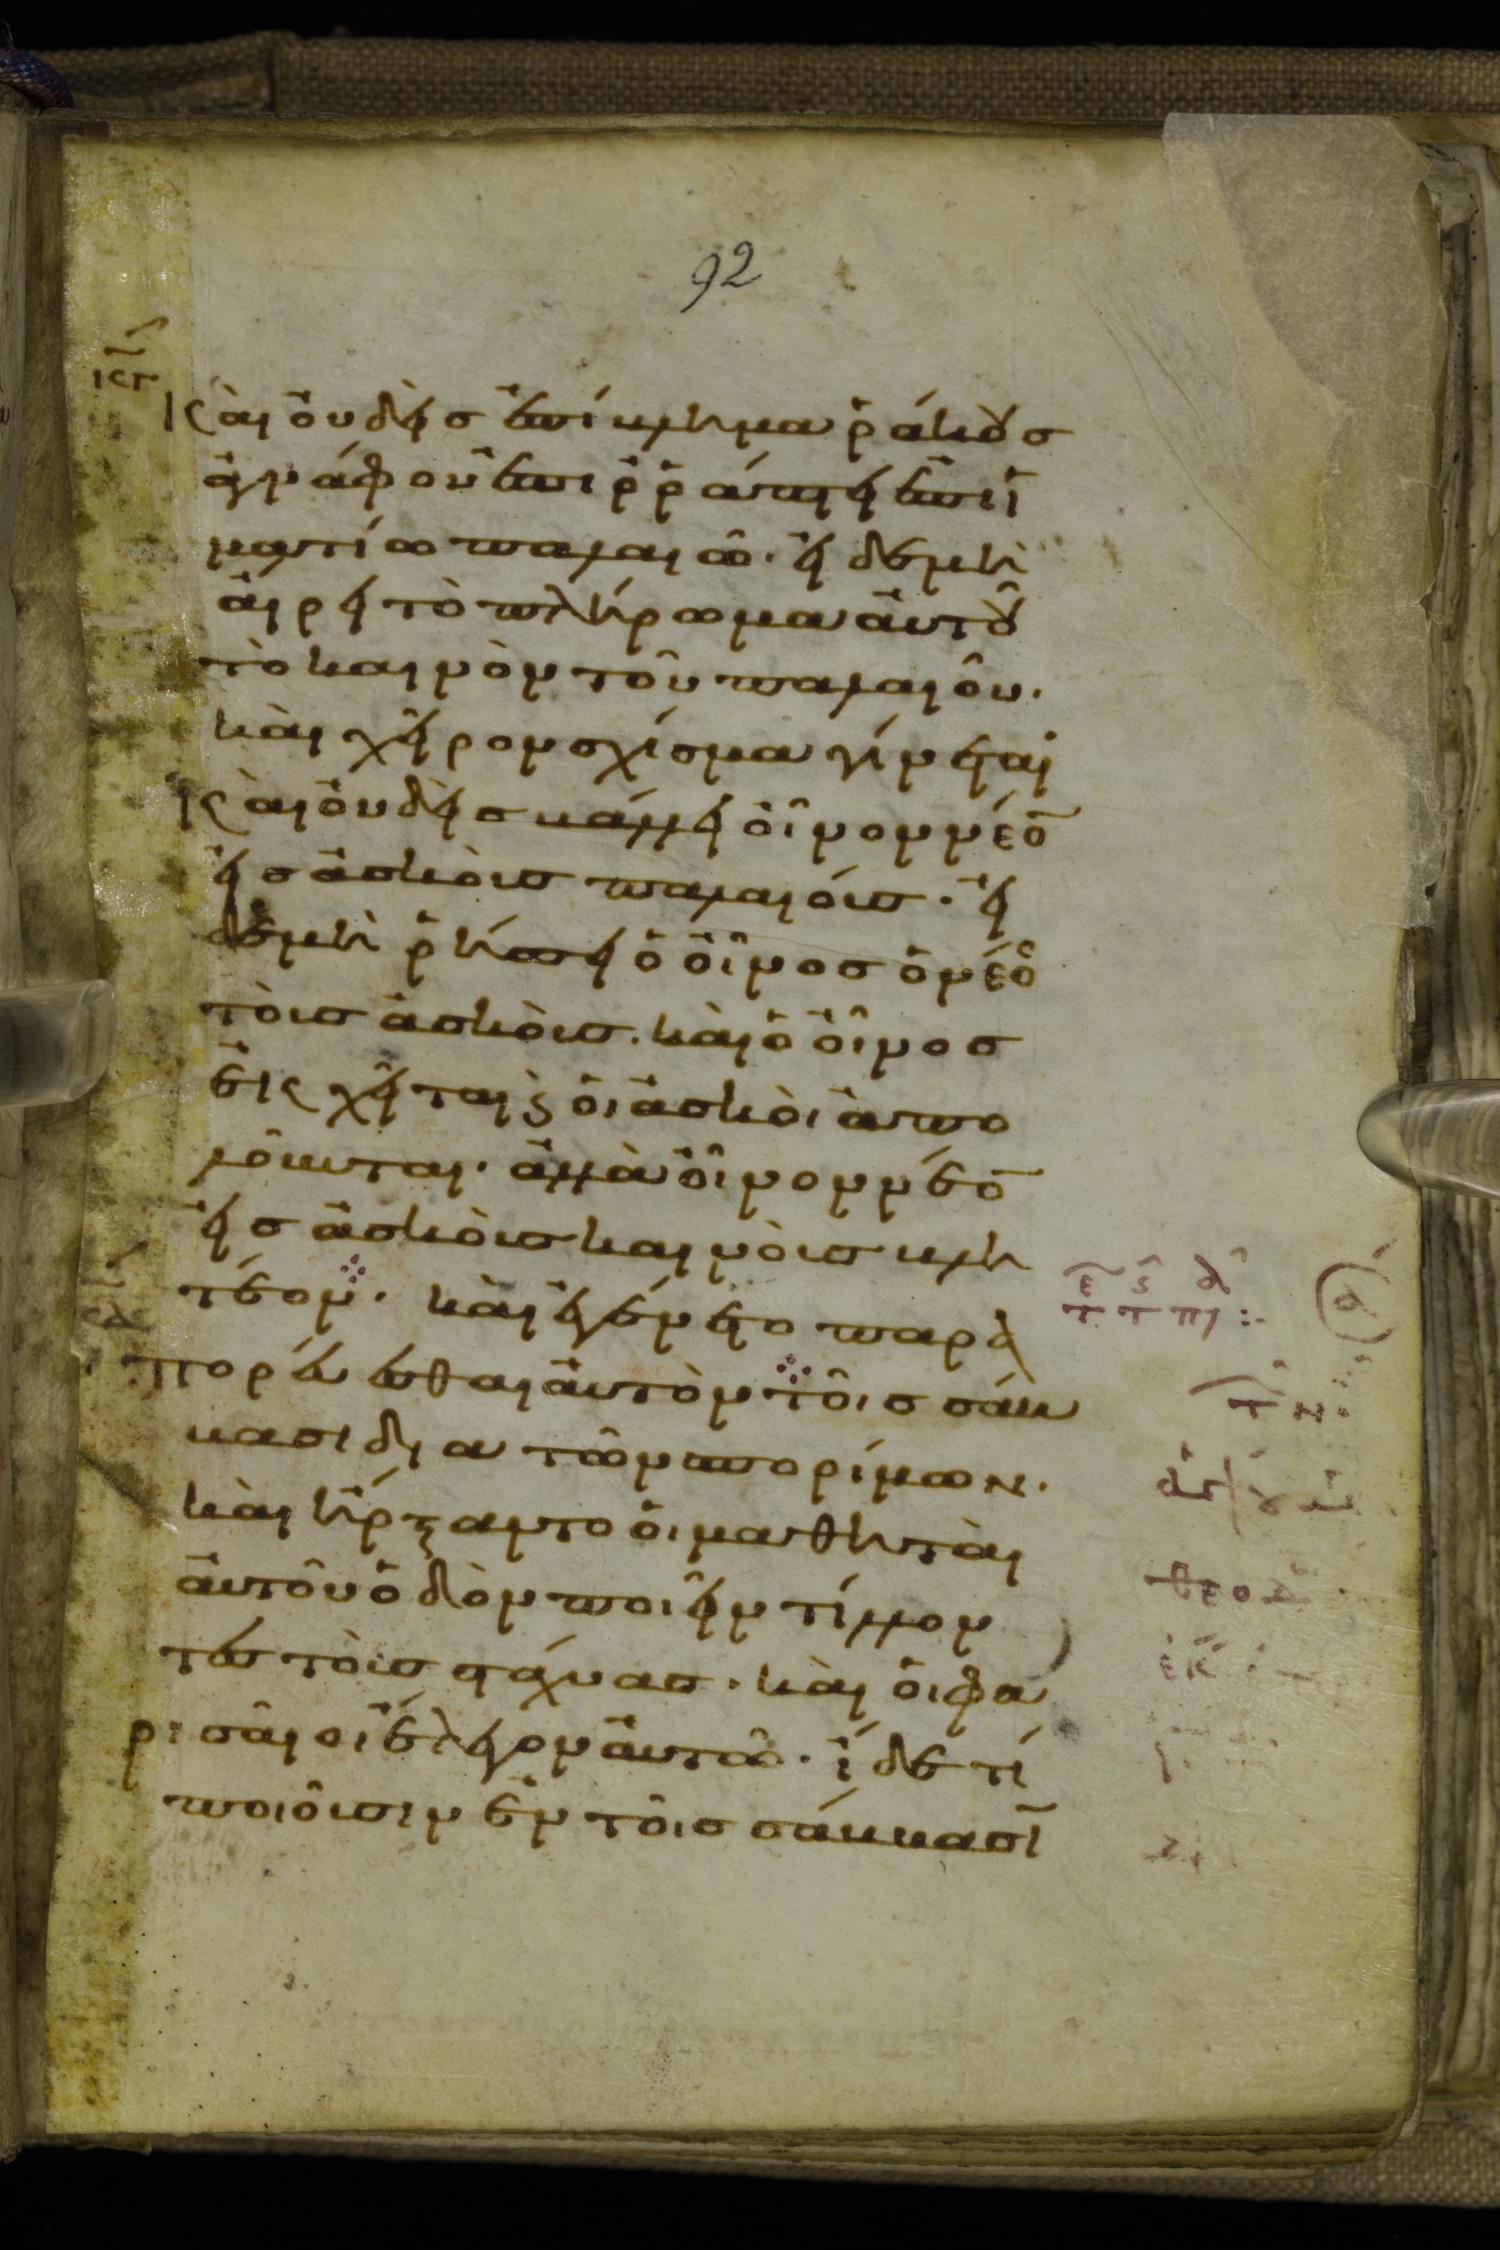 92
Και ουδεις επίκλημα ράκους
αγνάφου επιρράπτει επι ι
ματίω παλαιω. ει δε μη
αιρει το πλήρωμα αυτου
το καινον του παλαιου.
και χειρον σχίσμα γίνεται
Και ουδεις βάλλει οινον νέον
εις ασκοις παλαιοις. ει
δε μη ρήσσει ο οινος ο νέος
τοις ασκοις. και ο οινος
εκχειται ϗ οι ασκοι απο
λουνται. αλλα οινον νέον
εις ασκοις καινοις βλη
τέον. και εγένετο παρα
πορεύεσθαι αυτον τοις σάβ
βασι δια των σπορίμων.
και ήρξαντο οι μαθηται
αυτου οδον ποιειν τίλλον
τες τοις στάχυας. και οι φα
ρισαιοι έλεγον αυτω. ίδε τί
ποιουσιν εν τοις σάββασι